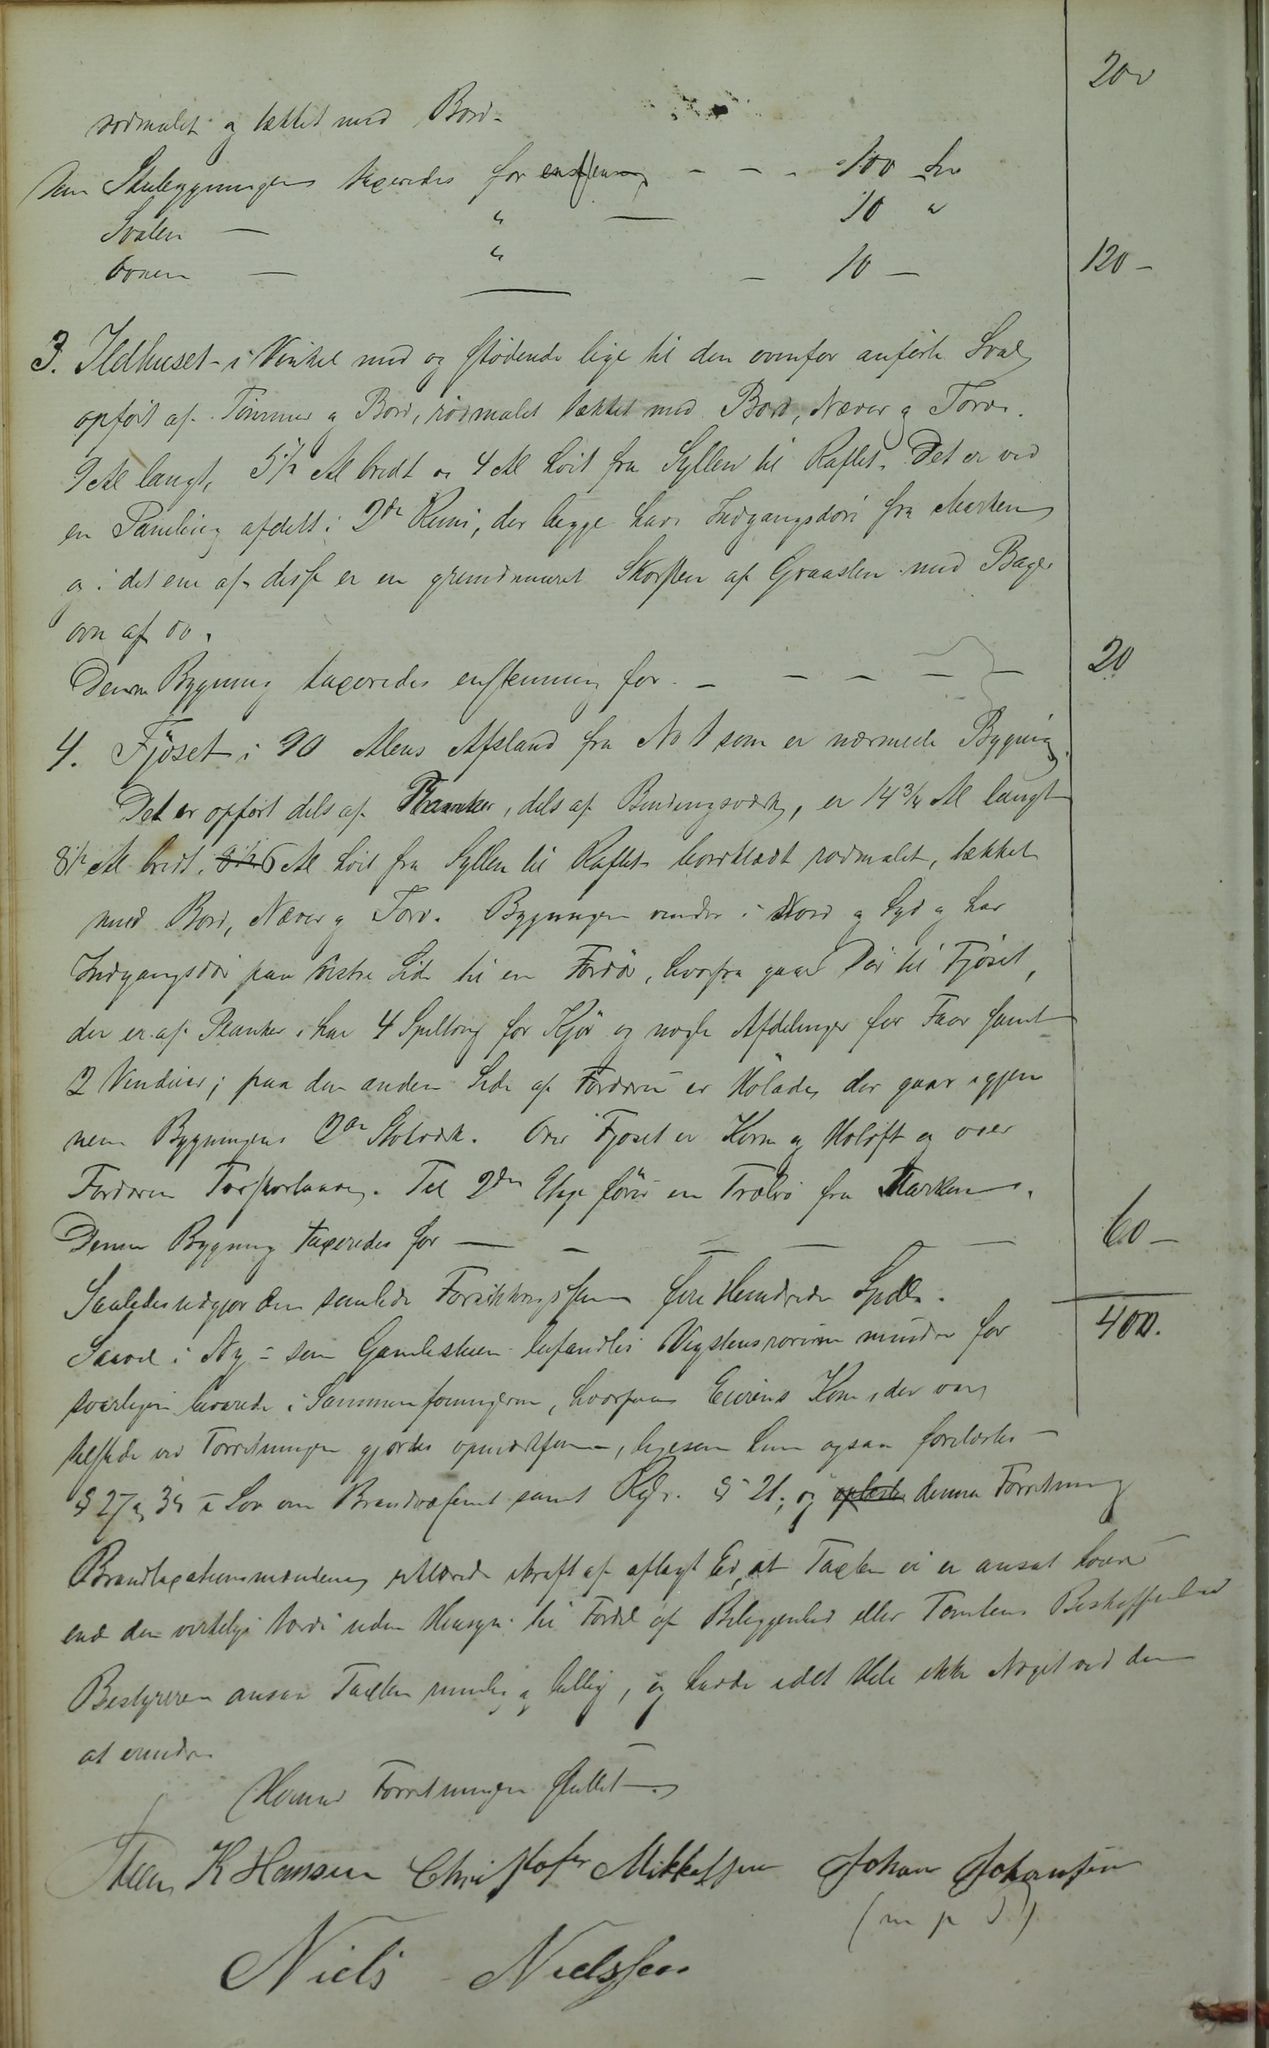 200
rødmalet og tækket med Bord.
Skubygningen taxeredes for enstemmig - - - 100 Spd
Svalen — " — 10 "
Ovnen — " — 10 —
120 —
3. Ildhuset i Vinkel med og stødende lige til den ovenfor anførte Sval
opført af Tømmer og Bord, rødmalet tækket med Bord, Næver og Torv.
9 Al langt, 5½ Al bredt og 4 Al høit fra Syllen til Raftet. Det er ved
en Paneling afdelt i 2de Rum, der begge have Indgangsdør fra Marken
og i det ene af disse er en grundmuret Skorsten af Graasten med Bager
ovn af do.
Denne Bygning taxeredes enstemmig for - - - - - 20
4. Fjøset i 90 Alens Afstand fra No 1 som er nærmeste Bygning.
Det er opført dels af Planker, dels af Bindingsværk, er 14¾ Al langt
8½ Al bredt, 6 Al høit fra Syllen til Raftet bordklædt rødmalet, tækket
med Bord, Næver og Torv. Bygningen vender i Nord og Syd og har
Indgangsdør paa Vestre Side til en Fordør, hvorfra gaar Dør til Fjøset,
der er af Planker, har 4 Spiltoug for Kjør og nogle Afdelinger for Faar samt
2 Vinduer; paa den anden Side af Fordøren er Hølade, der gaar igjen
nem Bygningens 2de Stokværk. Over Fjøset er Korn og Høloft og over
Fordøren Tærskerlaave. Til 2den Etage fører en Træbro fra Marken.
Denne Bygning taxeredes for — - — — — 60 —
Saaledes udgjør den samlede Forsikringssum fire Hundrede Spdlr. 400.
Saavel i Ny- som Gamlestuen befandtes Vægstensrørene mindre for
svarligen bevarede i Sammenføiningerne, hvorpaa Eierens Kone, der var
tilstede ved Forretningen gjordes opmærksom, ligesom hun ogsaa forelæstes
§ 27 og 35 i Lov om Brandvæsenet samt Rgl. § 21, og denne Forretning
Brandtaxationsmændene erklærede i kraft af aflagt Ed, at Taxten ei er ansat høiere
end den virkelige Værdi uden Hensyn til Fordel af Beliggenhed eller Tomtens Beskaffenhed
Bestyreren ansaa Taxten rimelig og billig, og havde i det Hele ikke Noget ved den
at erindre
Hermed Forretningen sluttet.
K Hansen Christofer Mikkelsen Johan Johansen
(m p P)
Niels Nielssen